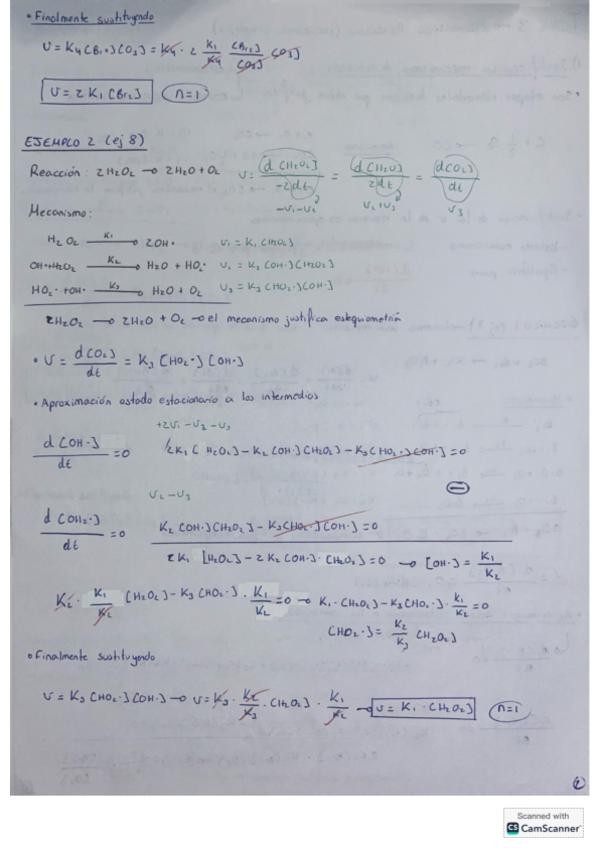 • Finalmente sustituyendo
V = K4 [Br·] [O3] = K4 · 2 K1/K4 [Br2]/[O3] [O3]
V = 2 K1 [Br2] n=1
EJEMPLO 2 (ej 8)
Reacción: 2H2O2 → 2H2O + O2 V = d[H2O2]/-2dt = d[H2O]/2dt = d[O2]/dt
-V1-V2 V2+V3 V3
Mecanismo:
H2O2 —K1→ 2OH· V1 = K1 [H2O2]
OH·+H2O2 —K2→ H2O + HO2· V2 = K2 [OH·][H2O2]
HO2· + OH· —K3→ H2O + O2 V3 = K3 [HO2·][OH·]
2H2O2 → 2H2O + O2 → el mecanismo justifica estequiometría
• V = d[O2]/dt = K3 [HO2·] [OH·]
• Aproximación estado estacionario a los intermedios
+2V1 - V2 - V3
d[OH·]/dt = 0 2K1 [H2O2] - K2 [OH·][H2O2] - K3 [HO2·][OH·] = 0
V2 - V3
d[OH2·]/dt = 0 K2 [OH·][H2O2] - K3 [HO2·][OH·] = 0
2K1 [H2O2] - 2K2 [OH·]·[H2O2] = 0 → [OH·] = K1/K2
K2 · K1/K2 [H2O2] - K3 [HO2·] · K1/K2 = 0 → K1·[H2O2] - K3[HO2·]·K1/K2 = 0
[HO2·] = K2/K3 [H2O2]
• Finalmente sustituyendo
V = K3 [HO2·][OH·] → V = K3 · K2/K3 · [H2O2] · K1/K2 → V = K1 · [H2O2] n=1
2
Scanned with
CS CamScanner